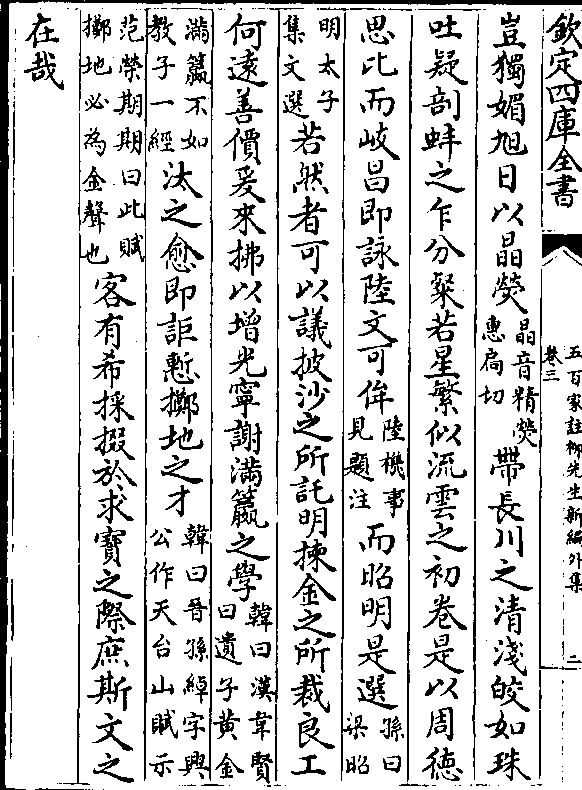 欽定四庫全書
五百家註栁先生新編外集
卷三
二
豈獨媚旭日以晶熒晶音精熒惠扃切帶長川之清淺皎如珠
吐疑剖蚌之乍分粲若星繁似流雲之初卷是以周徳
思比而岐昌即詠陸文可侔陸機事見題注而昭明是選孫曰梁昭
明太子集文選若然者可以議披沙之所託明揀金之所裁良工
何逺善價爰來拂以增光寧謝滿籝之學韓曰漢韋賢曰遺子黄金
滿籝不如教子一經汰之愈即詎慙擲地之才韓曰晉孫綽字興公作天台山賦示
范榮期期曰此賦擲地必為金聲也客有希採掇於求寶之際庶斯文之
在哉